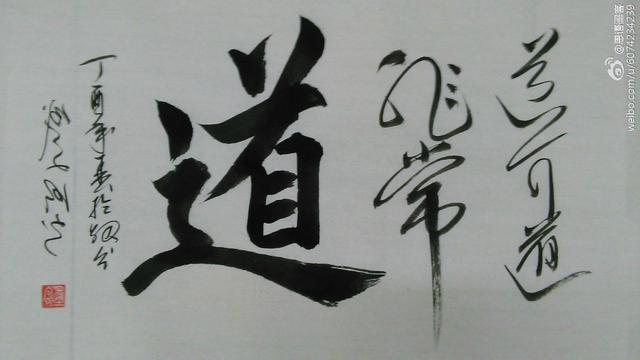 道可道
非常
道
丁酉年春於烟台
weibo.com/u/6074234239